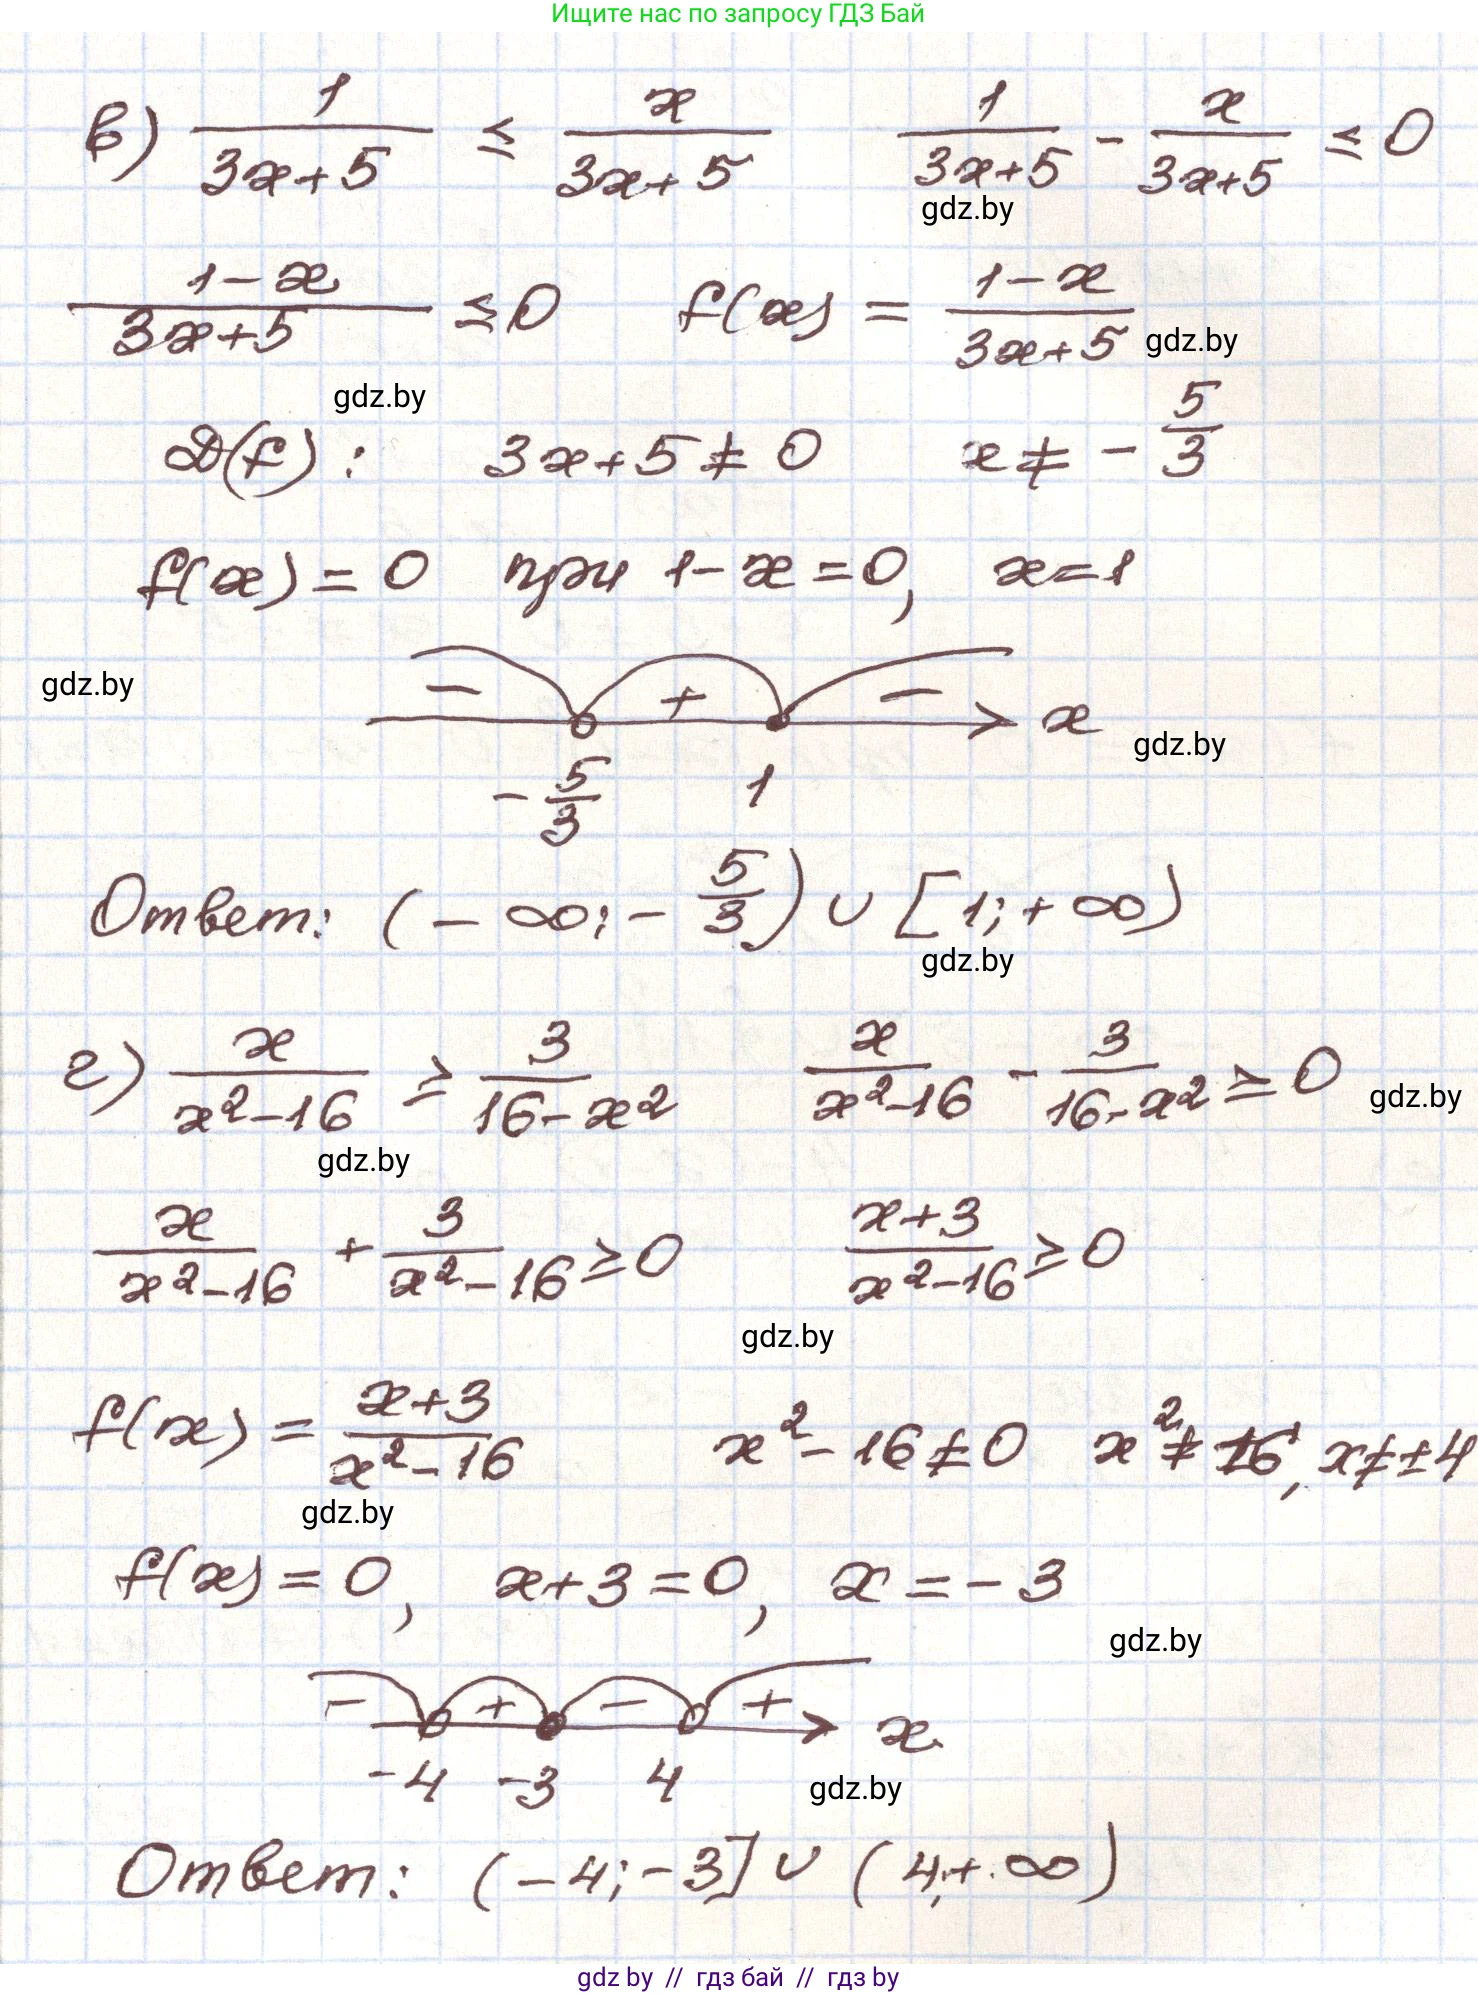 Ищите нас по запросу ГДЗ Бай
в) 1/(3x+5) ≤ x/(3x+5)   1/(3x+5) - x/(3x+5) ≤ 0
gdz.by
(1-x)/(3x+5) ≤ 0   f(x) = (1-x)/(3x+5)
gdz.by
gdz.by
D(f): 3x+5 ≠ 0   x ≠ -5/3
f(x) = 0 при 1-x = 0, x = 1
gdz.by
- + - x
gdz.by
-5/3   1
Ответ: (-∞; -5/3) ∪ [1; +∞)
gdz.by
г) x/(x²-16) ≥ 3/(16-x²)   x/(x²-16) - 3/(16-x²) ≥ 0
gdz.by
gdz.by
x/(x²-16) + 3/(x²-16) ≥ 0   (x+3)/(x²-16) ≥ 0
gdz.by
f(x) = (x+3)/(x²-16)   x²-16 ≠ 0   x² ≠ 16, x ≠ ±4
gdz.by
f(x) = 0, x+3 = 0, x = -3
gdz.by
- + - + x
-4 -3 4
gdz.by
Ответ: (-4; -3] ∪ (4; +∞)
gdz by // гдз бай // гдз by